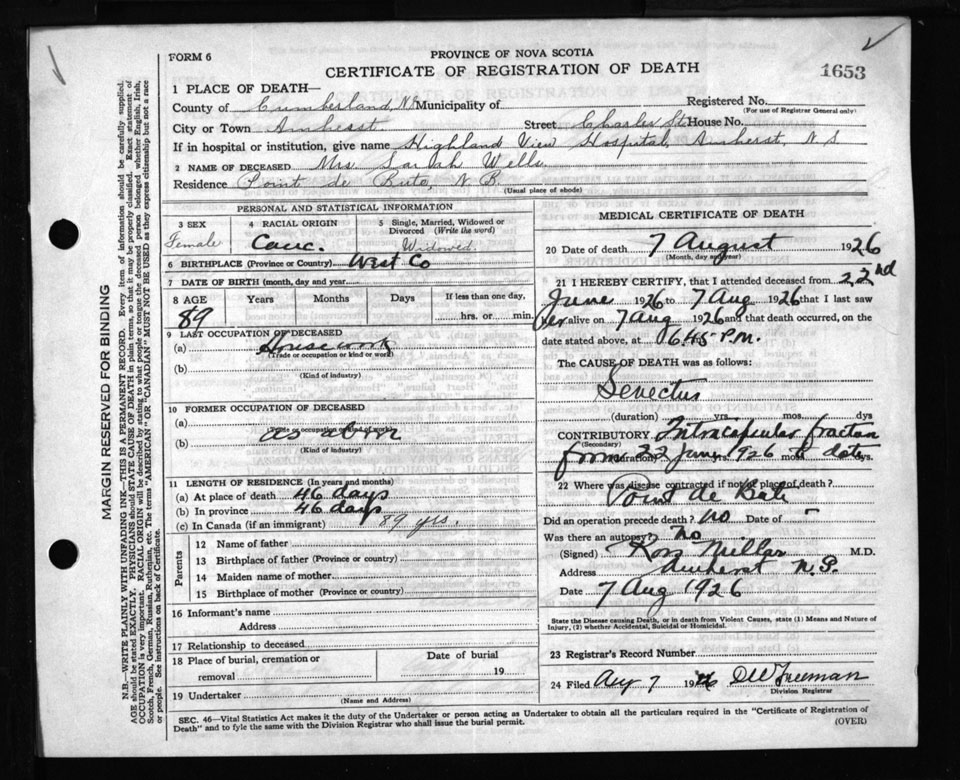 FORM 6
PROVINCE OF NOVA SCOTIA
CERTIFICATE OF REGISTRATION OF DEATH
1653
1 PLACE OF DEATH—
County of Cumberland, N.S. Municipality of
Registered No.
(For use of Registrar General only)
City or Town Amherst. Street Charles St. House No.
If in hospital or institution, give name Highland View Hospital, Amherst, N S
2 NAME OF DECEASED Mrs. Sarah Wells
Residence Point de Bute, N. B. (Usual place of abode)
PERSONAL AND STATISTICAL INFORMATION
3 SEX
Female
4 RACIAL ORIGIN
Cauc.
5 Single, Married, Widowed or Divorced (Write the word)
Widowed
6 BIRTHPLACE (Province or Country) West Co
7 DATE OF BIRTH (month, day and year)
8 AGE Years Months Days If less than one day,
89 hrs. or min.
9 LAST OCCUPATION OF DECEASED
(a) Housework
(Trade or occupation or kind or work)
(b)
(Kind of industry)
10 FORMER OCCUPATION OF DECEASED
(a)
(Trade or occupation or kind of work)
(b) as above
(Kind of industry)
11 LENGTH OF RESIDENCE (In years and months)
(a) At place of death 46 days
(b) In province 46 days
(c) In Canada (if an immigrant) 89 yrs.
Parents
12 Name of father
13 Birthplace of father (Province or country)
14 Maiden name of mother
15 Birthplace of mother (Province or country)
16 Informant's name
Address
17 Relationship to deceased
18 Place of burial, cremation or removal
Date of burial
19
19 Undertaker
(Name and Address)
MEDICAL CERTIFICATE OF DEATH
20 Date of death 7 August 1926
(Month, day and year)
21 I HEREBY CERTIFY, that I attended deceased from 22nd
June 1926 to 7 Aug 1926 that I last saw
her alive on 7 Aug 1926 and that death occurred, on the
date stated above, at 6.45 P.M.
The CAUSE OF DEATH was as follows:
Senectus
(duration) yrs. mos. dys
CONTRIBUTORY Intracapsular fracture
(Secondary)
from 22 June 1926 to date
(duration) yrs. mos. dys.
22 Where was disease contracted if not at place of death?
Point de Bute
Did an operation precede death? No Date of -
Was there an autopsy? No
(Signed) Ross Millar M.D.
Address Amherst N.S.
Date 7 Aug 1926
State the Disease causing Death, or in death from Violent Causes, state (1) Means and Nature of
Injury, (2) whether Accidental, Suicidal or Homicidal.
23 Registrar's Record Number
24 Filed Aug 7 1926 DW Freeman
Division Registrar
SEC. 46—Vital Statistics Act makes it the duty of the Undertaker or person acting as Undertaker to obtain all the particulars required in the "Certificate of Registration of
Death" and to fyle the same with the Division Registrar who shall issue the burial permit.
(OVER)
MARGIN RESERVED FOR BINDING
N.B.—WRITE PLAINLY WITH UNFADING INK—THIS IS A PERMANENT RECORD. Every item of information should be carefully supplied.
AGE should be stated EXACTLY. PHYSICIANS should STATE CAUSE OF DEATH in plain terms, so that it may be properly classified. Exact statement of
OCCUPATION is very important. RACIAL ORIGIN will be described by stating to what people or tongue the deceased person belonged whether English, Irish,
Scotch, French, German, Russian, Ruthenian, etc. The terms "AMERICAN" OR "CANADIAN" MUST NOT BE USED as they express citizenship but not a race
or people. See instructions on back of Certificate.